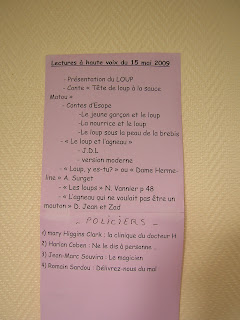 Lectures à haute voix du 15 mai 2009
- Présentation du LOUP
- Conte « Tête de loup à la sauce
Matou »
- Contes d'Esope
-Le jeune garçon et le loup
-La nourrice et le loup
-Le loup sous la peau de la brebis
- « Le loup et l'agneau »
- J.D.L
- version moderne
- « Loup, y es-tu? » ou « Dame Herme-
line » A. Surget
- « Les loups » N. Vannier p 48
- « L'agneau qui ne voulait pas être un
mouton » D. Jean et Zad
- POLICIERS -
1) mary Higgins Clark : la clinique du docteur H
2) Harlan Coben : Ne le dis à personne ..
3) Jean-Marc Souvira : Le magicien
4) Romain Sardou : Délivrez-nous du mal